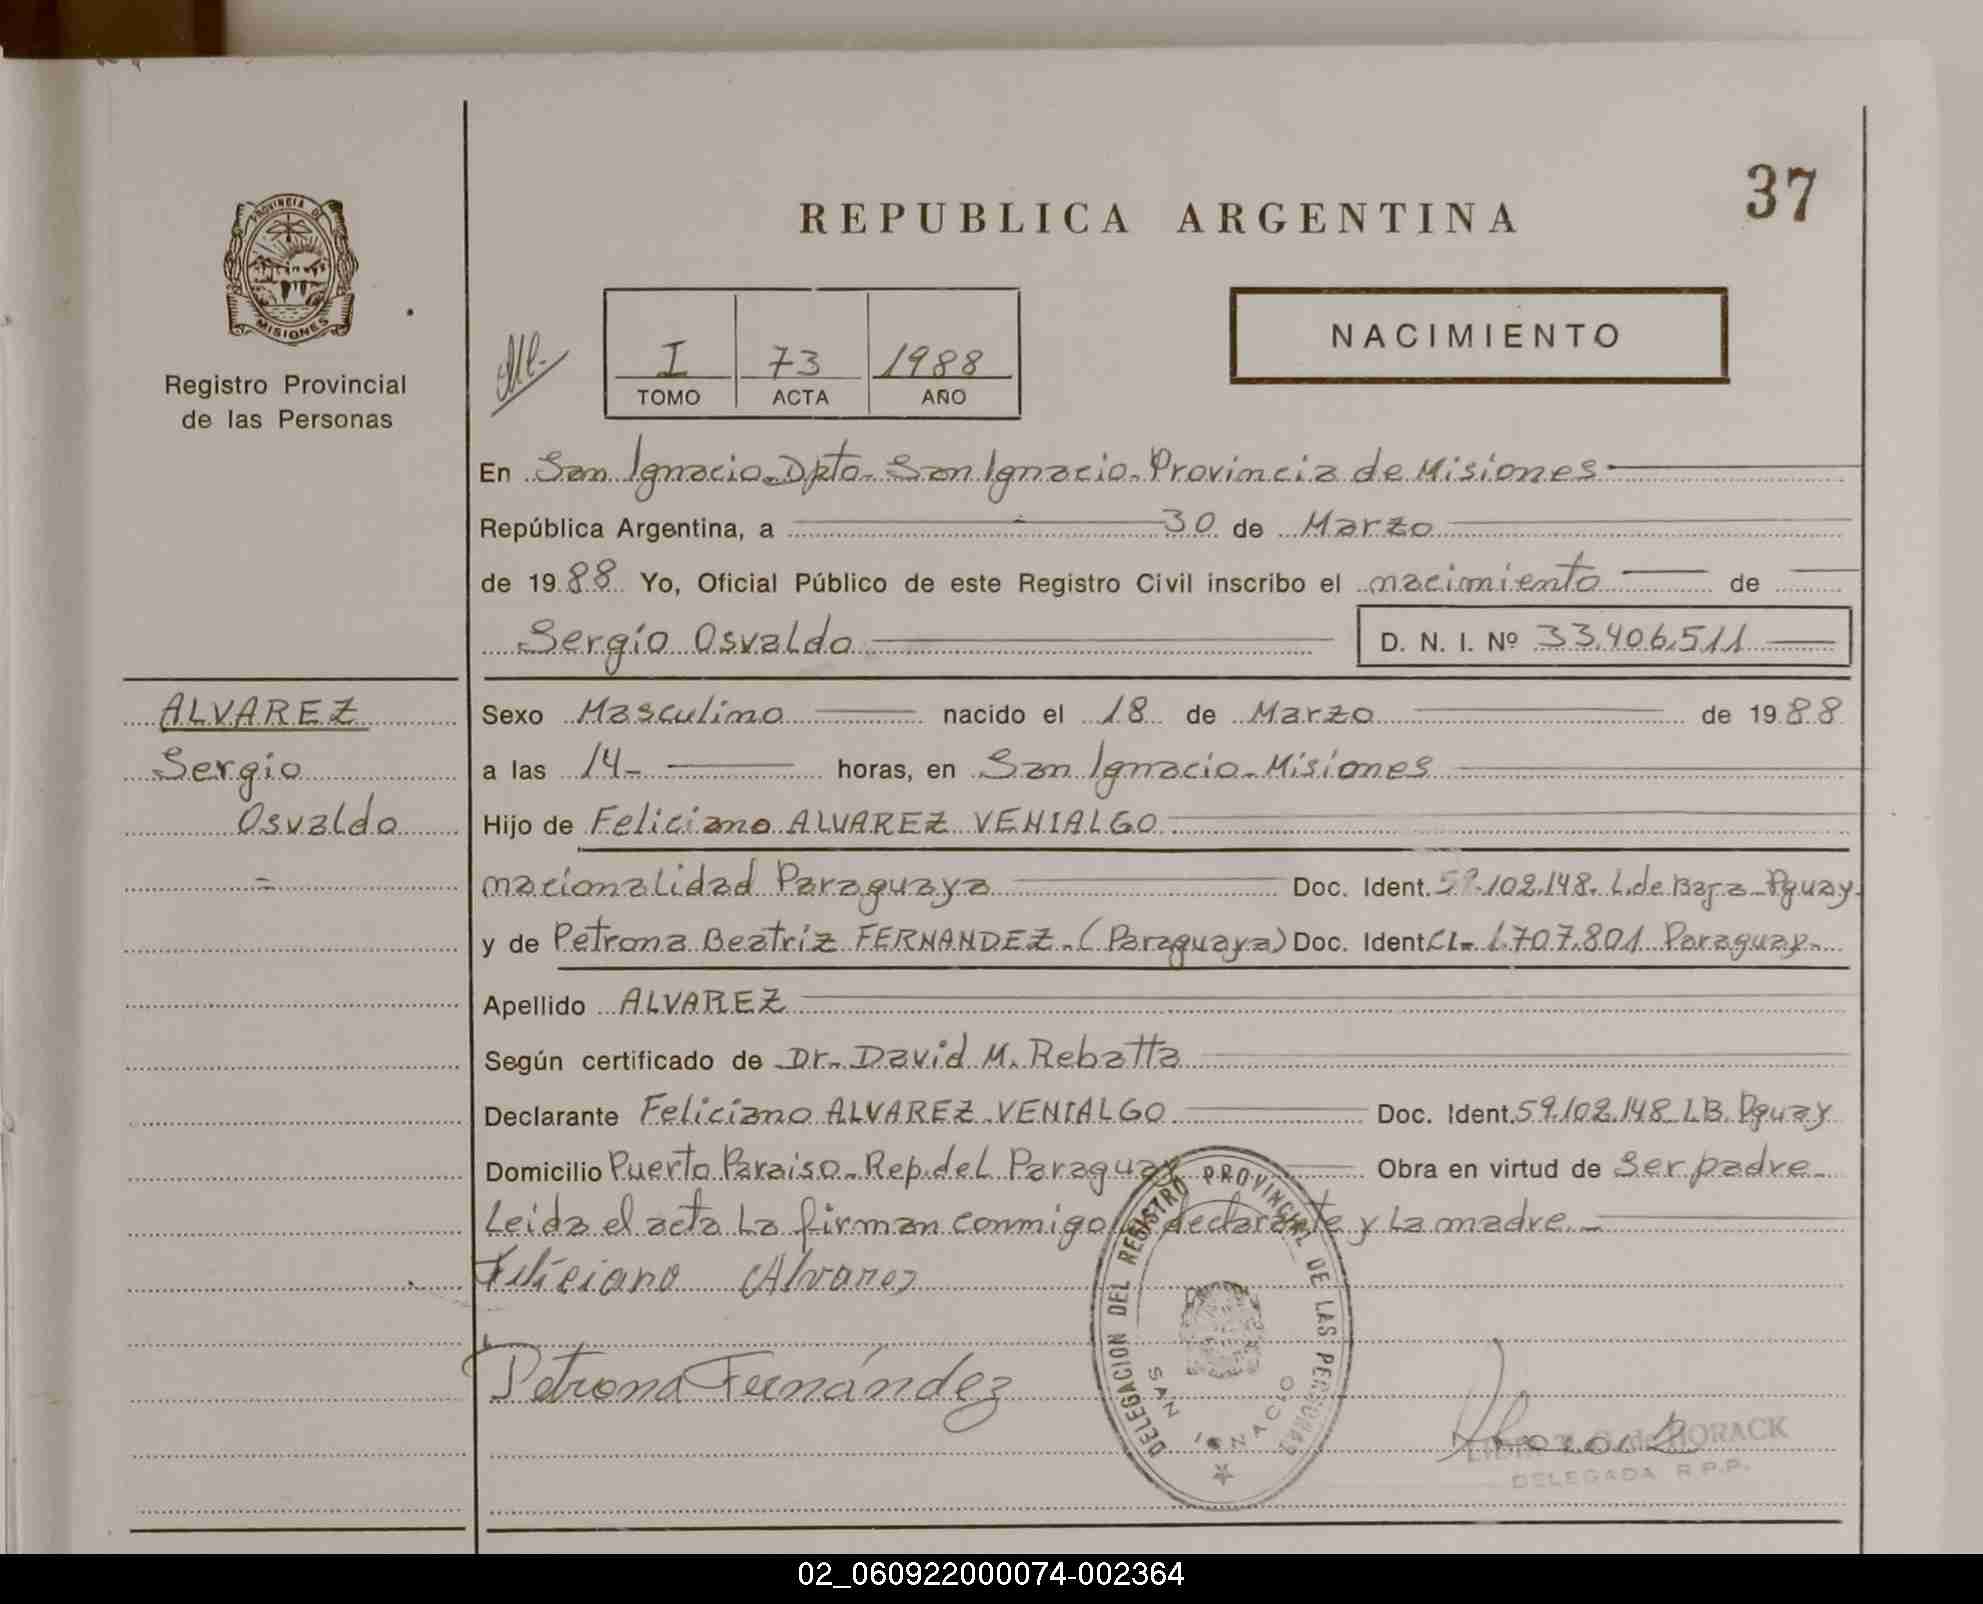 37
PROVINCIA DE
MISIONES
Registro Provincial
de las Personas
REPUBLICA ARGENTINA
I 73 1988
TOMO ACTA AÑO
NACIMIENTO
En San Ignacio. Dpto. San Ignacio. Provincia de Misiones
República Argentina, a 30 de Marzo
de 1988 Yo, Oficial Público de este Registro Civil inscribo el nacimiento de
Sergio Osvaldo D. N. I. Nº 33.406.511
ALVAREZ
Sergio
Osvaldo
Sexo Masculino nacido el 18 de Marzo de 1988
a las 14- horas, en San Ignacio. Misiones
Hijo de Feliciano ALVAREZ VENIALGO
nacionalidad Paraguaya Doc. Ident. 59.102.148. L.de Baja Pguay.
y de Petrona Beatriz FERNANDEZ. (Paraguaya) Doc. Ident. CI. 1.707.801 Paraguay.
Apellido ALVAREZ
Según certificado de Dr. David M. Rebatta
Declarante Feliciano ALVAREZ VENIALGO Doc. Ident. 59.102.148 LB. Pguay
Domicilio Puerto Paraiso. Rep. del Paraguay Obra en virtud de Ser padre.
Leida el acta La firman conmigo declarante y La madre.
Feliciano Alvarez
Petrona Fernández
DELEGACION DEL REGISTRO PROVINCIAL DE LAS PERSONAS
SAN IGNACIO
HORACK
DELEGADA R.P.P.
02_060922000074-002364